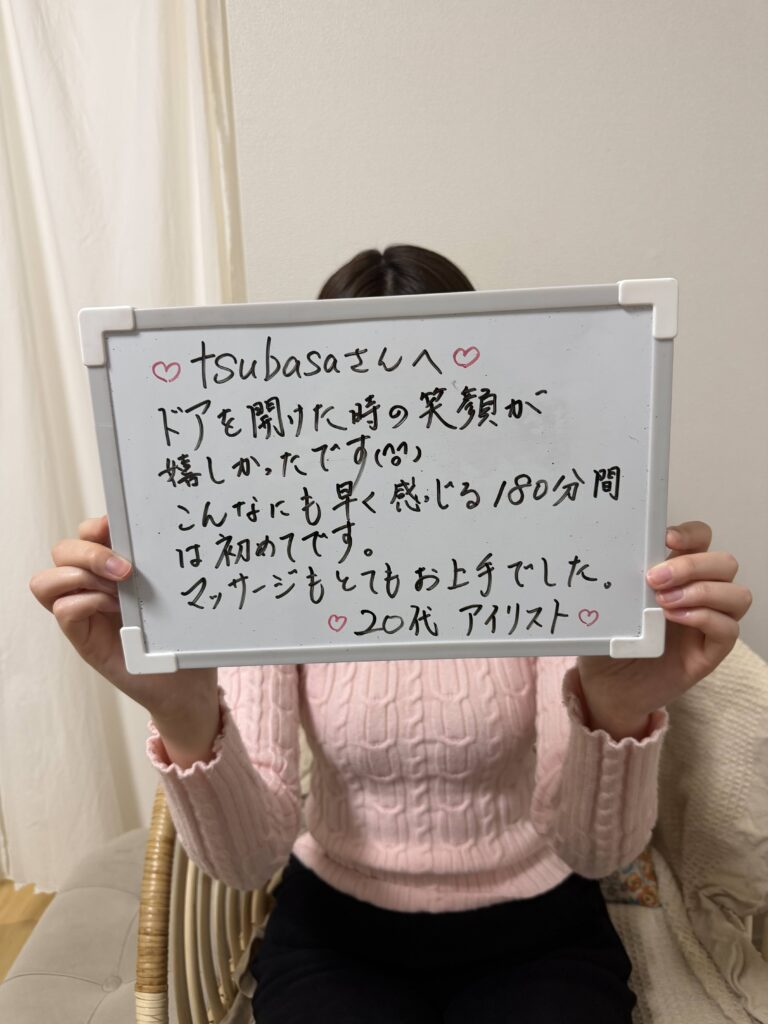 ♡ tsubasaさんへ ♡
ドアを開けた時の笑顔が
嬉しかったです(^o^)
こんなにも早く感じる180分間
は初めてです。
マッサージもとてもお上手でした。
♡ 20代 アイリスト ♡